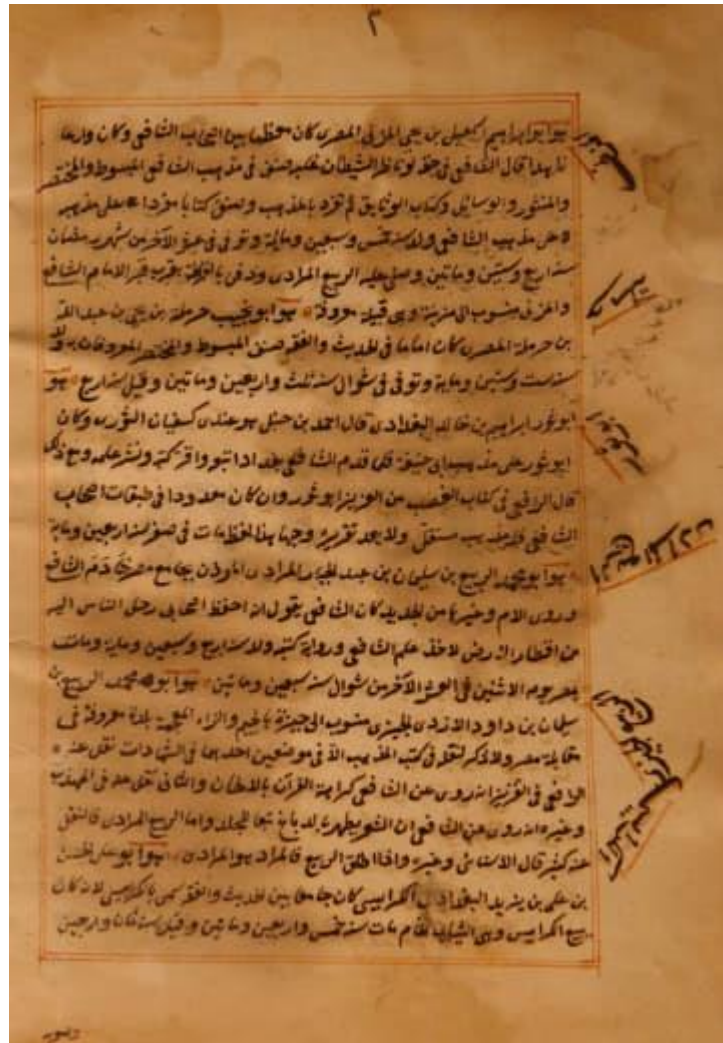 ٢
هو ابو ابراهيم اسمعيل بن يحيى المزنى المصرى كان معظما بين اصحاب الشافعى وكان وارعا
زاهدا قال الشافعى فى حقه لو ناظر الشيطان لغلبه صنف فى مذهب الشافعى المبسوط والمختصر
والمنثور والوسائل وكتاب الوثايق ثم تفرد بالمذهب وصنف كتابا مفردا على مذهبه
لا على مذهب الشافعى ولد سنة خمس وسبعين وماية وتوفى فى عشر الآخر من شهر رمضان
سنة اربع وستين وماتين وصلى عليه الربيع المرادى ودفن بالقرافة بقرب قبر الامام الشافعى
والمزنى منسوب الى مزينة وهى قبيلة معروفة هو ابو نجيب حرملة بن يحيى بن عبد الله
بن حرملة المصرى كان اماما فى الحديث والفقه صنف المبسوط والمختصر المعروفان به ولد
سنة ست وستين وماية وتوفى فى شوال سنة ثلث واربعين وماتين وقيل سنة اربع هو
ابو ثور ابراهيم بن خالد البغدادى قال احمد بن حنبل هو عندى كسفيان الثورى وكان
ابو ثور على مذهب ابى حنيفة فلما قدم الشافعى بغداد اتبعه وقرا كتبه ونشر علمه ومع ذلك
قال الرافعى فى كتاب الغصب من العزيز ابو ثور وان كان معدودا فى طبقات اصحاب
الشافعى فله مذهب مستقل ولا يعد تفرده وجها مات فى صفر سنة اربعين وماية
هو ابو محمد الربيع بن سليمان بن عبد الجبار المرادى الموذن بجامع مصر خادم الشافعى
وروى الام وغيرها من الجديد كان الشافعى يقول انه احفظ اصحابى رحل الناس اليه
من اقطار الارض لاخذ علم الشافعى ورواية كتبه ولد سنة اربع وسبعين وماية ومات
بمصر يوم الاثنين فى العشر الآخر من شوال سنة سبعين وماتين هو ابو محمد الربيع بن
سليمان بن داود الازدى الجيزى منسوب الى جيزة بالجيم والزاء المعجمة بلدة معروفة فى
مقابلة مصر ولا ذكر لنقله فى كتب المذهب الا فى موضعين احدهما فى الشهادات نقل عنه
الرافعى فى العزيز انه روى عن الشافعى كراهة القرآن بالالحان والثانى نقل عنه فى المهذب
وغيره انه روى عن الشافعى ان الشعر يطهر بالدباغ تبعا للجلد واما الربيع المرادى فالنقل
عنه كثير قال الاسنائى وغيره واذا اطلق الربيع فالمراد هو المرادى هو ابو على الحسين
بن على بن يزيد البغدادى الكرابيسى كان جامعا بين الحديث والفقه سمى بالكرابيسى لانه كان
يبيع الكرابيس وهى الثياب الخام مات سنة خمس واربعين وماتين وقيل سنة ثمان واربعين